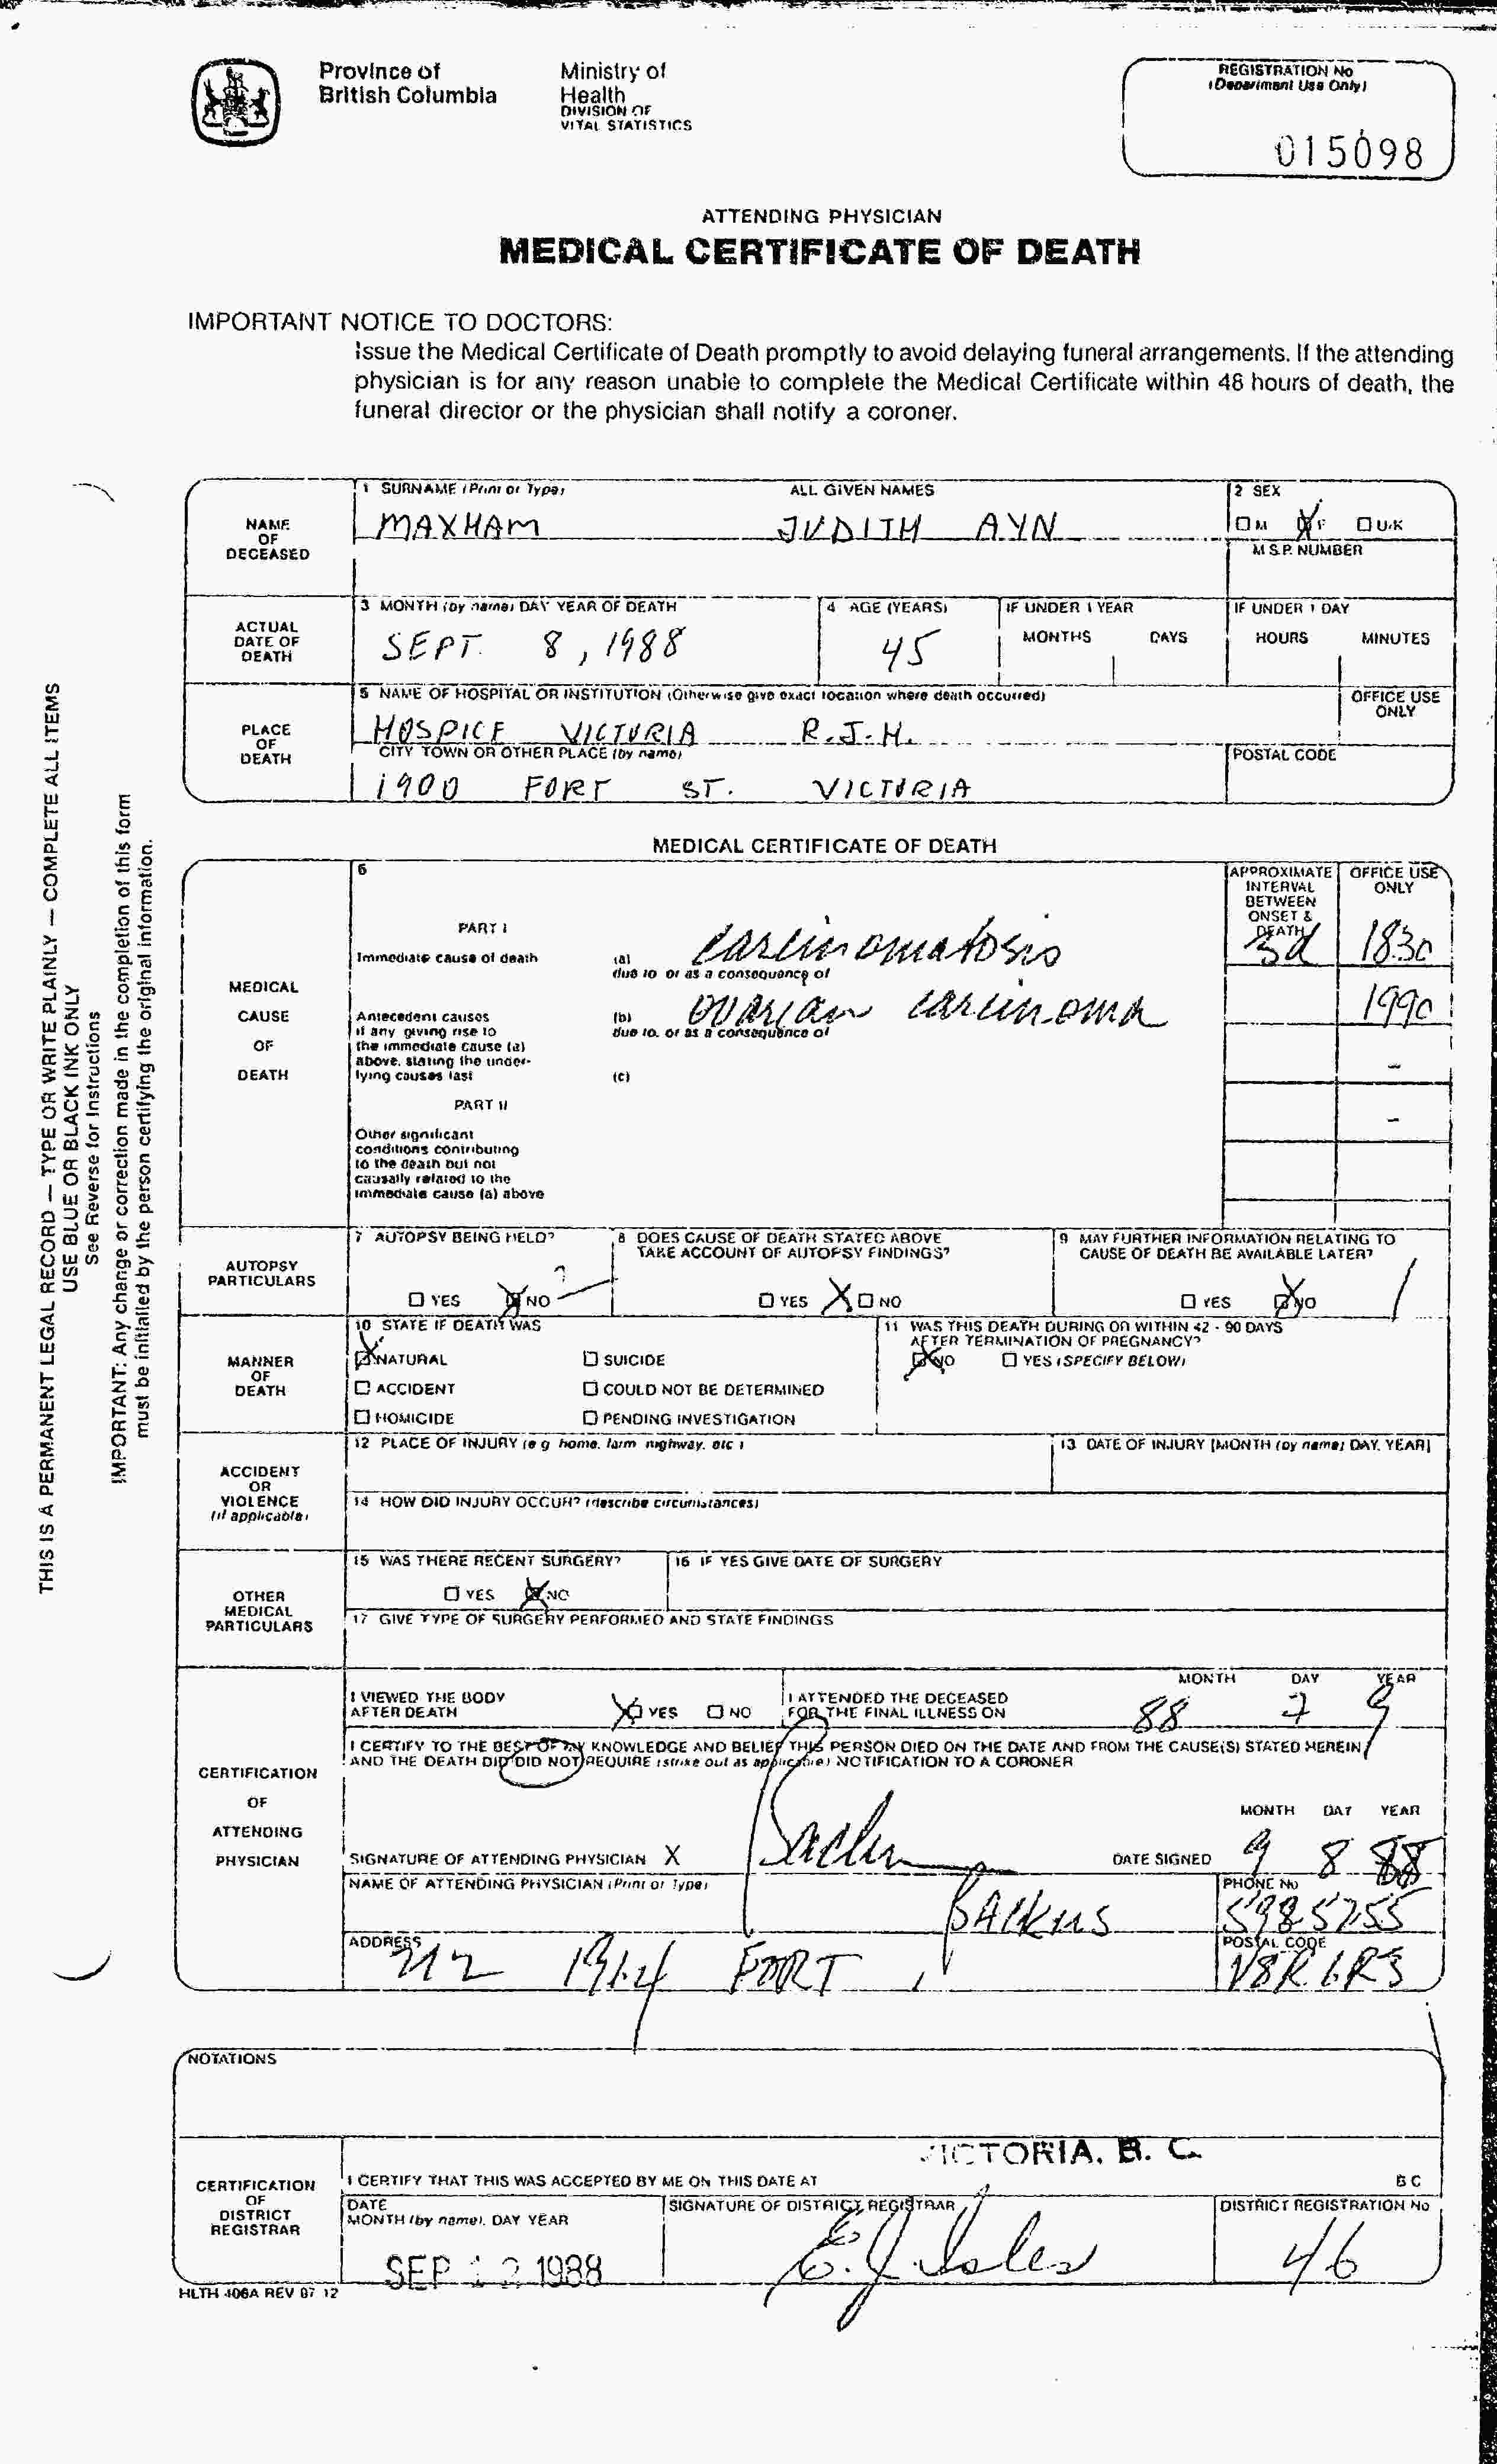 Province of British Columbia
Ministry of Health
DIVISION OF
VITAL STATISTICS
REGISTRATION No
(Department Use Only)
015098
ATTENDING PHYSICIAN
MEDICAL CERTIFICATE OF DEATH
IMPORTANT NOTICE TO DOCTORS:
Issue the Medical Certificate of Death promptly to avoid delaying funeral arrangements. If the attending
physician is for any reason unable to complete the Medical Certificate within 48 hours of death, the
funeral director or the physician shall notify a coroner.
THIS IS A PERMANENT LEGAL RECORD — TYPE OR WRITE PLAINLY — COMPLETE ALL ITEMS
USE BLUE OR BLACK INK ONLY
See Reverse for Instructions
IMPORTANT: Any change or correction made in the completion of this form
must be initialled by the person certifying the original information.
NAME OF DECEASED
1 SURNAME (Print or Type) ALL GIVEN NAMES
MAXHAM JUDITH AYN
2 SEX
M F U.K
M.S.P. NUMBER
ACTUAL DATE OF DEATH
3 MONTH (by name) DAY YEAR OF DEATH
SEPT. 8, 1988
4 AGE (YEARS)
45
IF UNDER 1 YEAR
MONTHS DAYS
IF UNDER 1 DAY
HOURS MINUTES
PLACE OF DEATH
5 NAME OF HOSPITAL OR INSTITUTION (Otherwise give exact location where death occurred)
HOSPICE VICTORIA R.J.H.
OFFICE USE ONLY
CITY TOWN OR OTHER PLACE (by name)
1900 FORT ST. VICTORIA
POSTAL CODE
MEDICAL CERTIFICATE OF DEATH
MEDICAL CAUSE OF DEATH
6
APPROXIMATE INTERVAL BETWEEN ONSET & DEATH
OFFICE USE ONLY
PART I
Immediate cause of death
(a) carcinomatosis 3d 1830
due to or as a consequence of
Antecedent causes
if any giving rise to
the immediate cause (a)
above, stating the under-
lying causes last
(b) ovarian carcinoma 1990
due to. or as a consequence of
(c) -
PART II
-
Other significant
conditions contributing
to the death but not
causally related to the
immediate cause (a) above
AUTOPSY PARTICULARS
7 AUTOPSY BEING HELD?
YES NO
8 DOES CAUSE OF DEATH STATED ABOVE
TAKE ACCOUNT OF AUTOPSY FINDINGS?
YES NO
9 MAY FURTHER INFORMATION RELATING TO
CAUSE OF DEATH BE AVAILABLE LATER?
YES NO
MANNER OF DEATH
10 STATE IF DEATH WAS
NATURAL SUICIDE
ACCIDENT COULD NOT BE DETERMINED
HOMICIDE PENDING INVESTIGATION
11 WAS THIS DEATH DURING OR WITHIN 42 - 90 DAYS
AFTER TERMINATION OF PREGNANCY?
NO YES (SPECIFY BELOW)
ACCIDENT OR VIOLENCE (if applicable)
12 PLACE OF INJURY (e g home, farm highway, etc )
13 DATE OF INJURY [MONTH (by name) DAY, YEAR]
14 HOW DID INJURY OCCUR? (describe circumstances)
OTHER MEDICAL PARTICULARS
15 WAS THERE RECENT SURGERY?
YES NO
16 IF YES GIVE DATE OF SURGERY
17 GIVE TYPE OF SURGERY PERFORMED AND STATE FINDINGS
CERTIFICATION OF ATTENDING PHYSICIAN
I VIEWED THE BODY
AFTER DEATH
YES NO
I ATTENDED THE DECEASED
FOR THE FINAL ILLNESS ON
MONTH DAY YEAR
88 7 9
I CERTIFY TO THE BEST OF MY KNOWLEDGE AND BELIEF THIS PERSON DIED ON THE DATE AND FROM THE CAUSE(S) STATED HEREIN
AND THE DEATH DID/DID NOT REQUIRE (strike out as applicable) NOTIFICATION TO A CORONER
MONTH DAY YEAR
SIGNATURE OF ATTENDING PHYSICIAN X
DATE SIGNED 9 8 88
NAME OF ATTENDING PHYSICIAN (Print or Type)
PHONE No
5985755
ADDRESS
212 1914 FORT
POSTAL CODE
V8R 6R3
NOTATIONS
CERTIFICATION OF DISTRICT REGISTRAR
VICTORIA, B. C.
I CERTIFY THAT THIS WAS ACCEPTED BY ME ON THIS DATE AT B C
DATE
MONTH (by name). DAY YEAR
SEP 1988
SIGNATURE OF DISTRICT REGISTRAR
DISTRICT REGISTRATION No
46
HLTH 406A REV 87 12